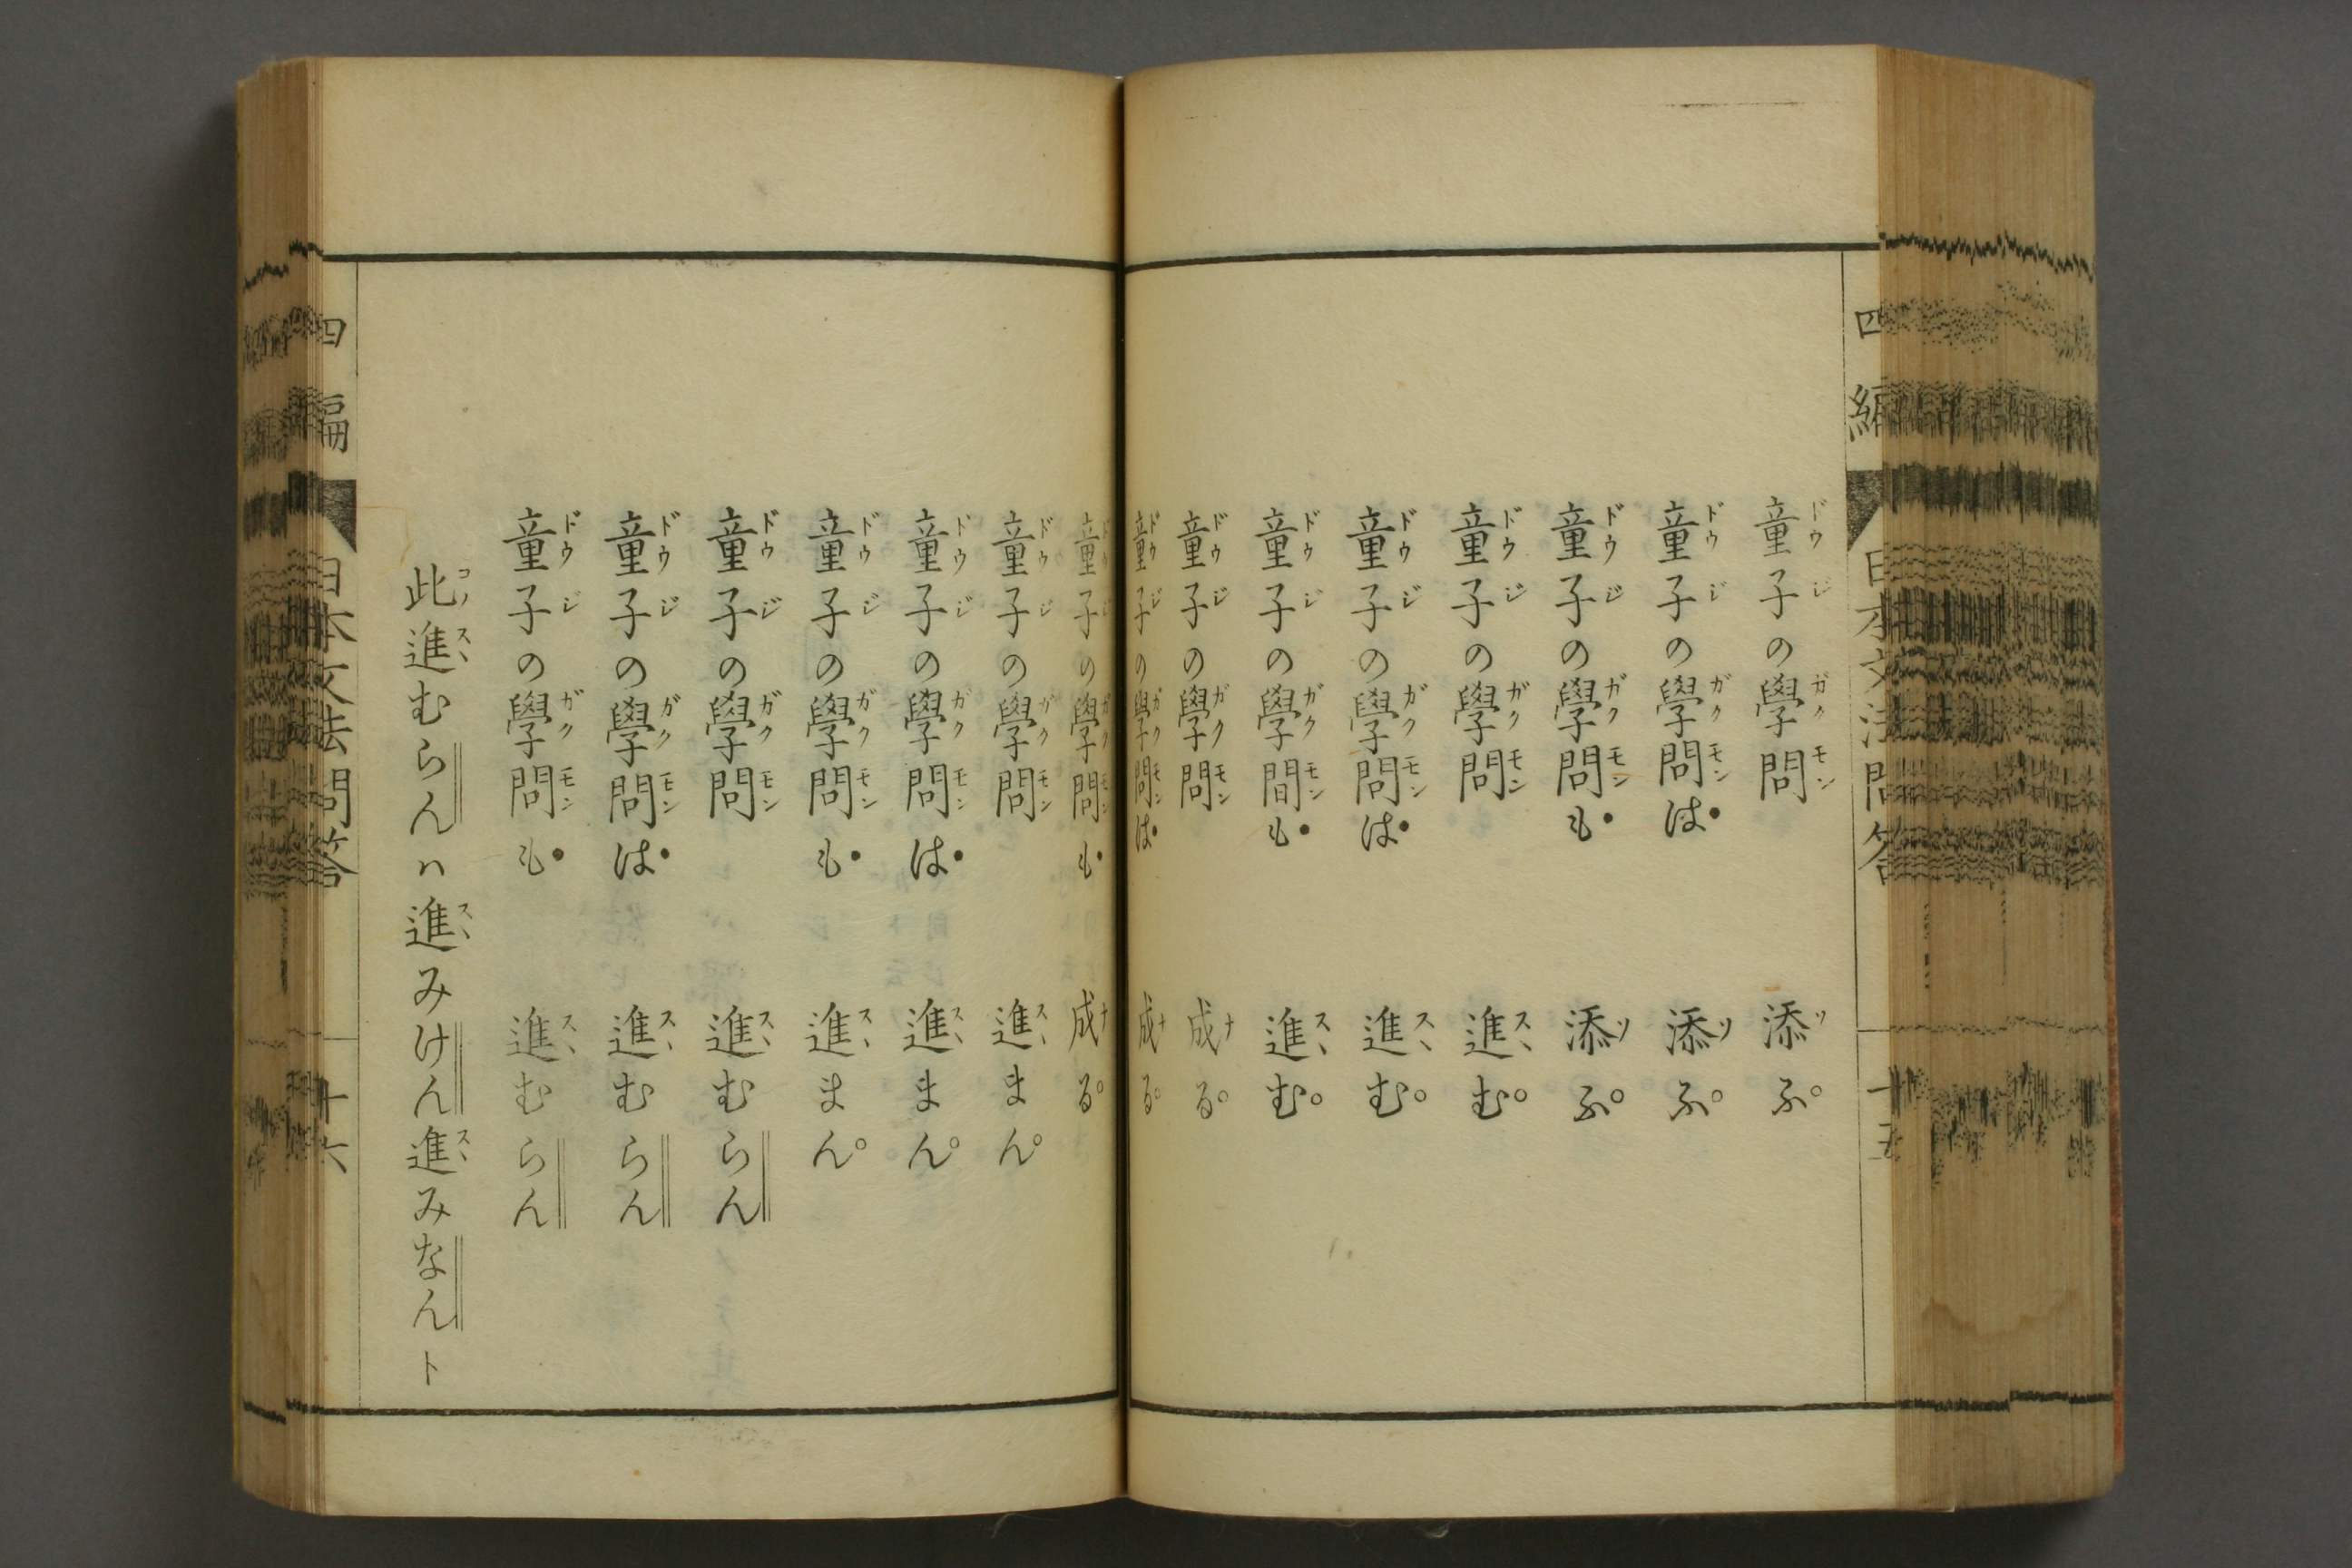 四編 日本文法問答 十五
童子の學問 添ふ
童子の學問は 添ふ
童子の學問も 添ふ
童子の學問 進む
童子の學問は 進む
童子の學間も 進む
童子の學問 成る
童子の學問は 成る
童子の學問も 成る
童子の學問 進まん
童子の學問は 進まん
童子の學問も 進まん
童子の學問 進むらん
童子の學問は 進むらん
童子の學問も 進むらん
此進むらんハ進みけん進みなんト
四編 日本文法問答 十六